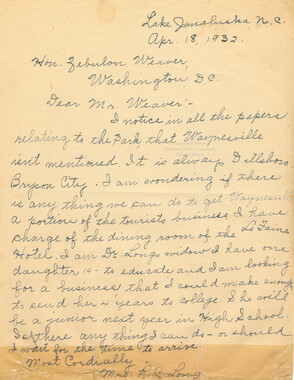 Lake Junaluska N.C.
Apr. 18, 1932.
Hon. Zebulon Weaver,
Washington D.C.
Dear Mr. Weaver:-
I notice in all the papers
relating to the Park that Waynesville
isn't mentioned. It is always Dillsboro
Bryson City. I am wondering if there
is any thing we can do to get Waynesville
a portion of the tourists business. I have
charge of the dining room of the La Faine
Hotel. I am Dr. Longs widow. I have one
daughter 14 to educate and I am looking
for a business that I could make enough
to send her 4 years to College. She will
be a junior next year in High School.
Is there any thing I can do - or should
I wait for the time to arrive.
Most Cordially
Mrs. R. L. Long